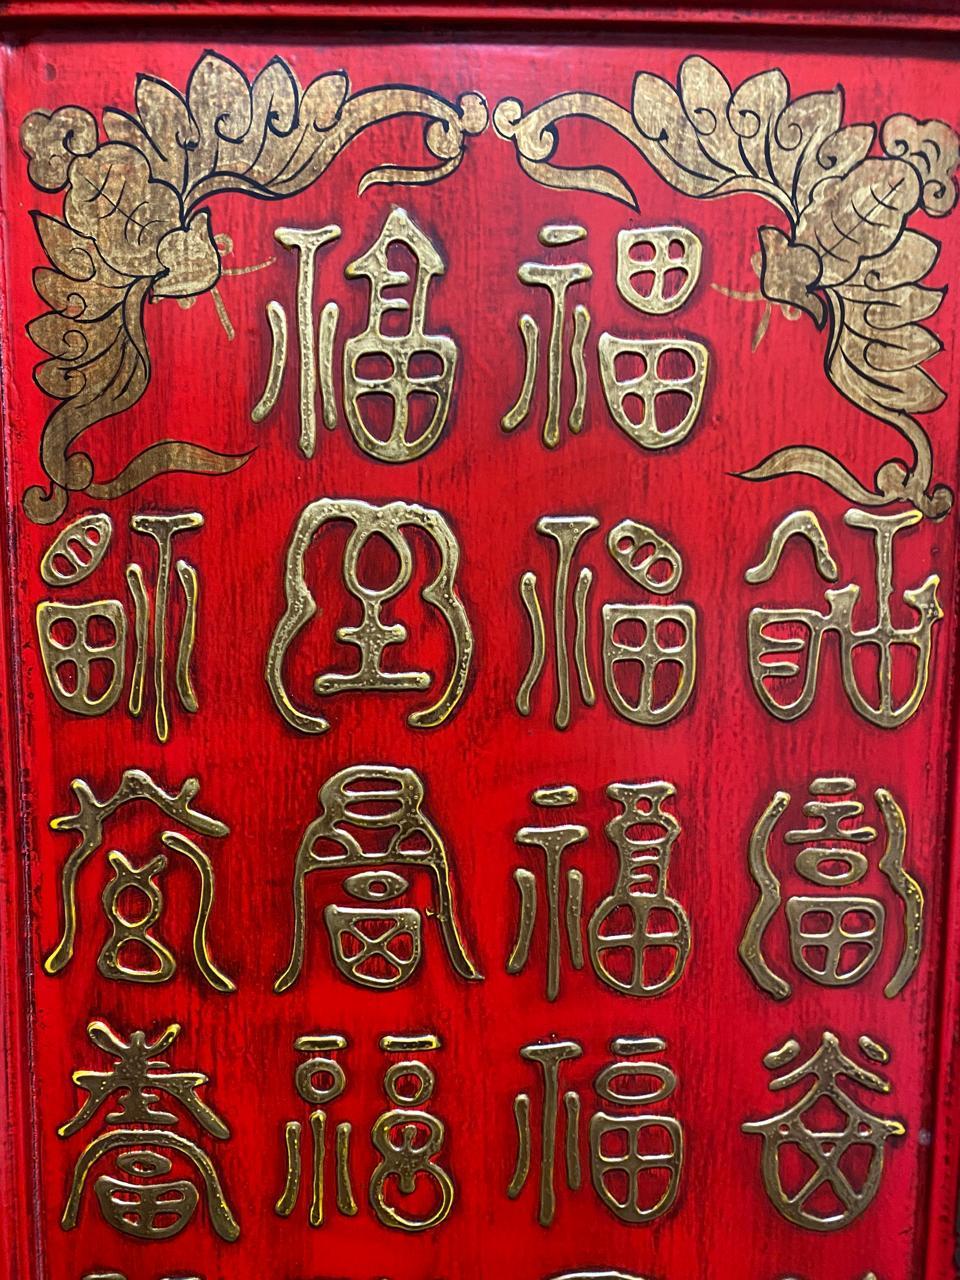 福 福
福 福 福 福
福 福 福 福
福 福 福 福